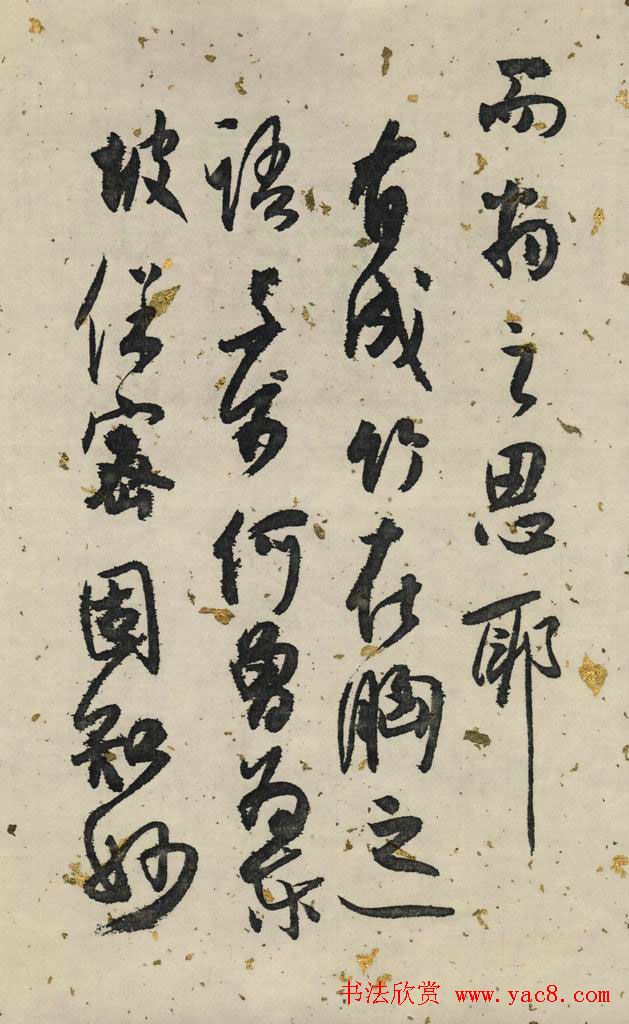 而之思耶
有成竹在胸之
語与何曾為東
坡保密固知妙
书法欣赏 www.yac8.com